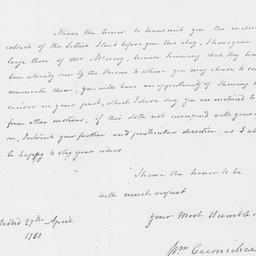 I have the honor to transmit you the inclos
extracts of the Letters I laid before you this day, I have given
large those of Mr. because knowing that they have
been already seen by the Persons to whom you may choose to com
municate them, you will have an opportunity of showing
candor on your part, which I dare say you are inclined to
from other motives, if this doth not correspond with your
on, I intreat your further and particular direction, as I sh
be happy to obey your orders
I have the honor to be
with much respect
Your Most Humble
Madrid 27th April
1782
Wm Carmichael